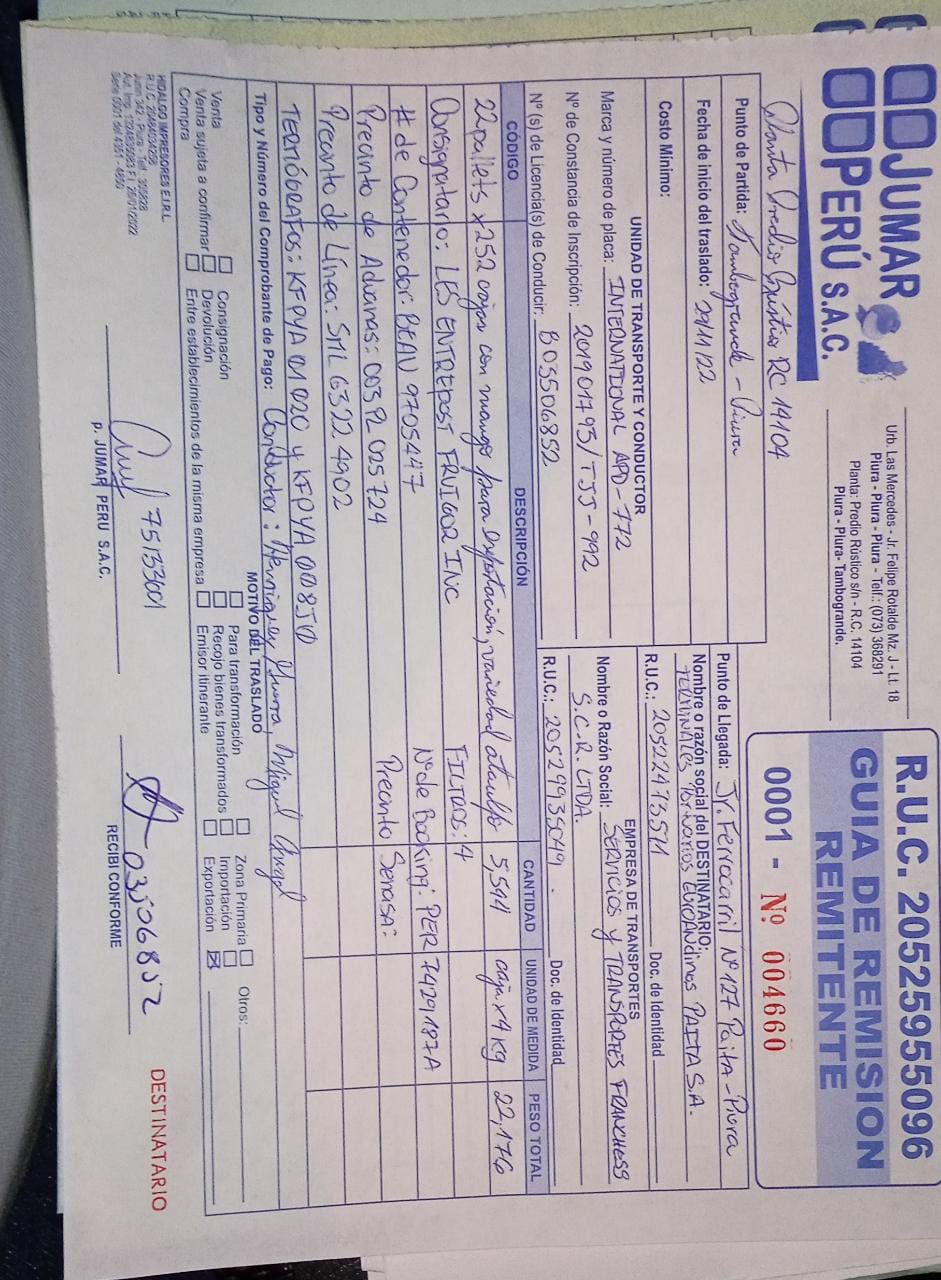 JUMAR
PERÚ S.A.C.
Urb. Las Mercedes - Jr. Felipe Rotalde Mz. J - Lt. 18
Piura - Piura - Piura - Telf.: (073) 368291
Planta: Predio Rústico s/n - R.C. 14104
Piura - Piura- Tambogrande.
R.U.C. 20525955096
GUIA DE REMISION
REMITENTE
0001 - Nº 004660
Planta Predio Rústico RC 14104
Punto de Partida: Tambogrande - Piura
Punto de Llegada: Jr. Ferrocarril Nº 127 Paita - Piura
Fecha de inicio del traslado:
Nombre o razón social del DESTINATARIO:
TERMINALES Portuarios EUROAndinos PAITA S.A.
Costo Minimo:
R.U.C.: 20522473571 Doc. de Identidad
UNIDAD DE TRANSPORTE Y CONDUCTOR
EMPRESA DE TRANSPORTES
Marca y número de placa: INTERNATIONAL APD-772
Nombre o Razón Social: SERVICIOS y TRANSPORTES FRANCHESS
S.C.R. LTDA.
Nº de Constancia de Inscripción: 201901793/TJJ-992
Nº (s) de Licencia(s) de Conducir: B03506852
R.U.C.: 20529935049. Doc. de Identidad
CÓDIGO DESCRIPCIÓN CANTIDAD UNIDAD DE MEDIDA PESO TOTAL
22 pallets x 252 cajas con mango para Exportación, variedad ataulfo 5,544 caja x 4 kg 22,176
Consignatario: LES ENTREPOST FRUIGO2 INC FILTROS: 4
# de Contenedor: BEAU 9705447 Nº de Booking: PER 7429187A
Precinto de Aduanas: 00392 025724 Precinto Senasa:
Precinto de Línea: SML 6322 4902
TERMÓGRAFOS: KFPYA 01020 y KFPYA 008J0
Tipo y Número del Comprobante de Pago: Conductor: Miguel Angel
MOTIVO DEL TRASLADO
Venta Consignación Para transformación Zona Primaria Otros:
Venta sujeta a confirmar Devolución Recojo bienes transformados Importación
Compra Entre establecimientos de la misma empresa Emisor itinerante Exportación ☒
HIDALGO IMPRESORES E.I.R.L.
Serie 0001 del 4351 - 4850
75153601
p. JUMAR PERU S.A.C.
03506852
RECIBI CONFORME
DESTINATARIO